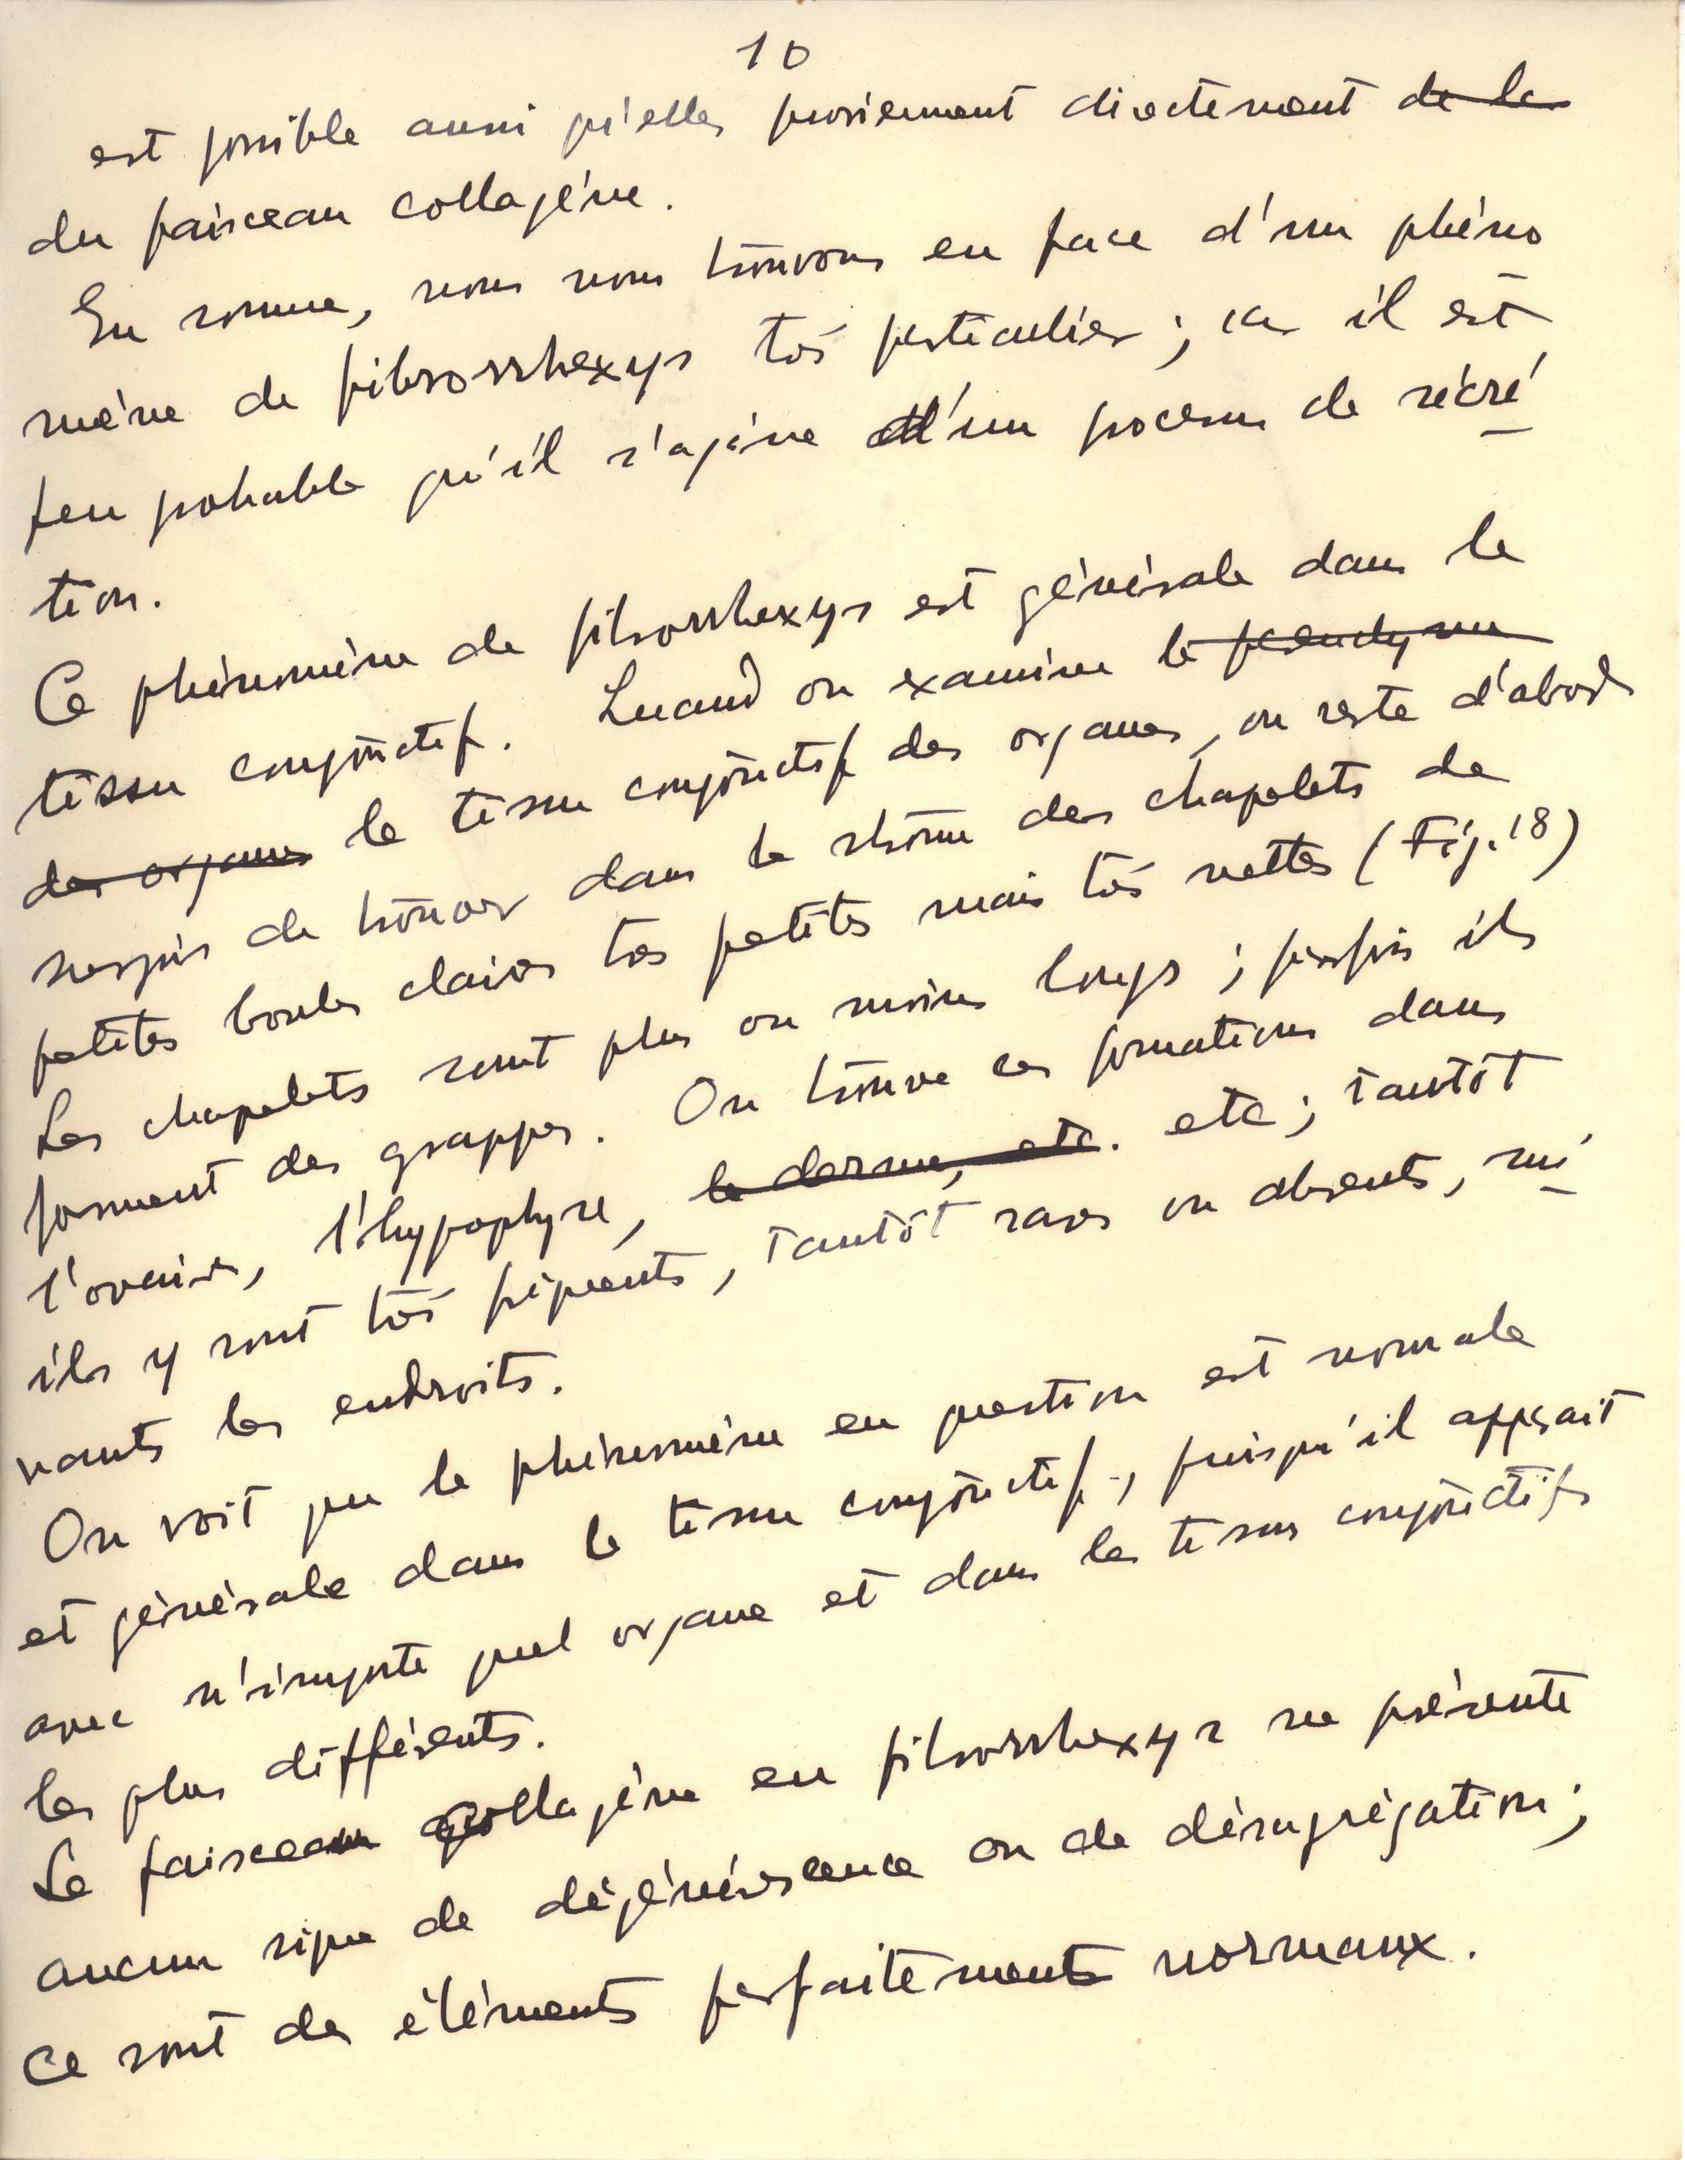 10
est possible aussi qu'elles proviennent directement de la
du faisceau collagène.
En somme, nous nous trouvons en face d'un phéno
mène de fibrorrhexys très particulier ; car il est
peu probable qu'il s'agisse d'un processus de sécré
tion.
Ce phénomène de fibrorrhexys est générale dans le
tissu conjonctif. Quand on examine le
des organes le tissu conjonctif des organes, on reste d'abord
surpris de trouver dans le stroma des chapelets de
petites boules claires très petites mais très nettes (Fig. 18)
Les chapelets sont plus ou moins longs ; parfois ils
forment des grappes. On trouve ces formations dans
l'ovaire, l'hypophyse, le derme, etc. etc ; tantôt
ils y sont très fréquents, tantôt rares ou absents, sui
vants les endroits.
On voit que le phénomène en question est normale
et générale dans le tissu conjonctif, puisqu'il apparait
avec n'importe quel organe et dans les tissus conjonctifs
les plus différents.
Le faisceau collagène en fibrorrhexys ne présente
aucun signe de dégénérescence ou de désagrégation ;
Ce sont des éléments parfaitement normaux.